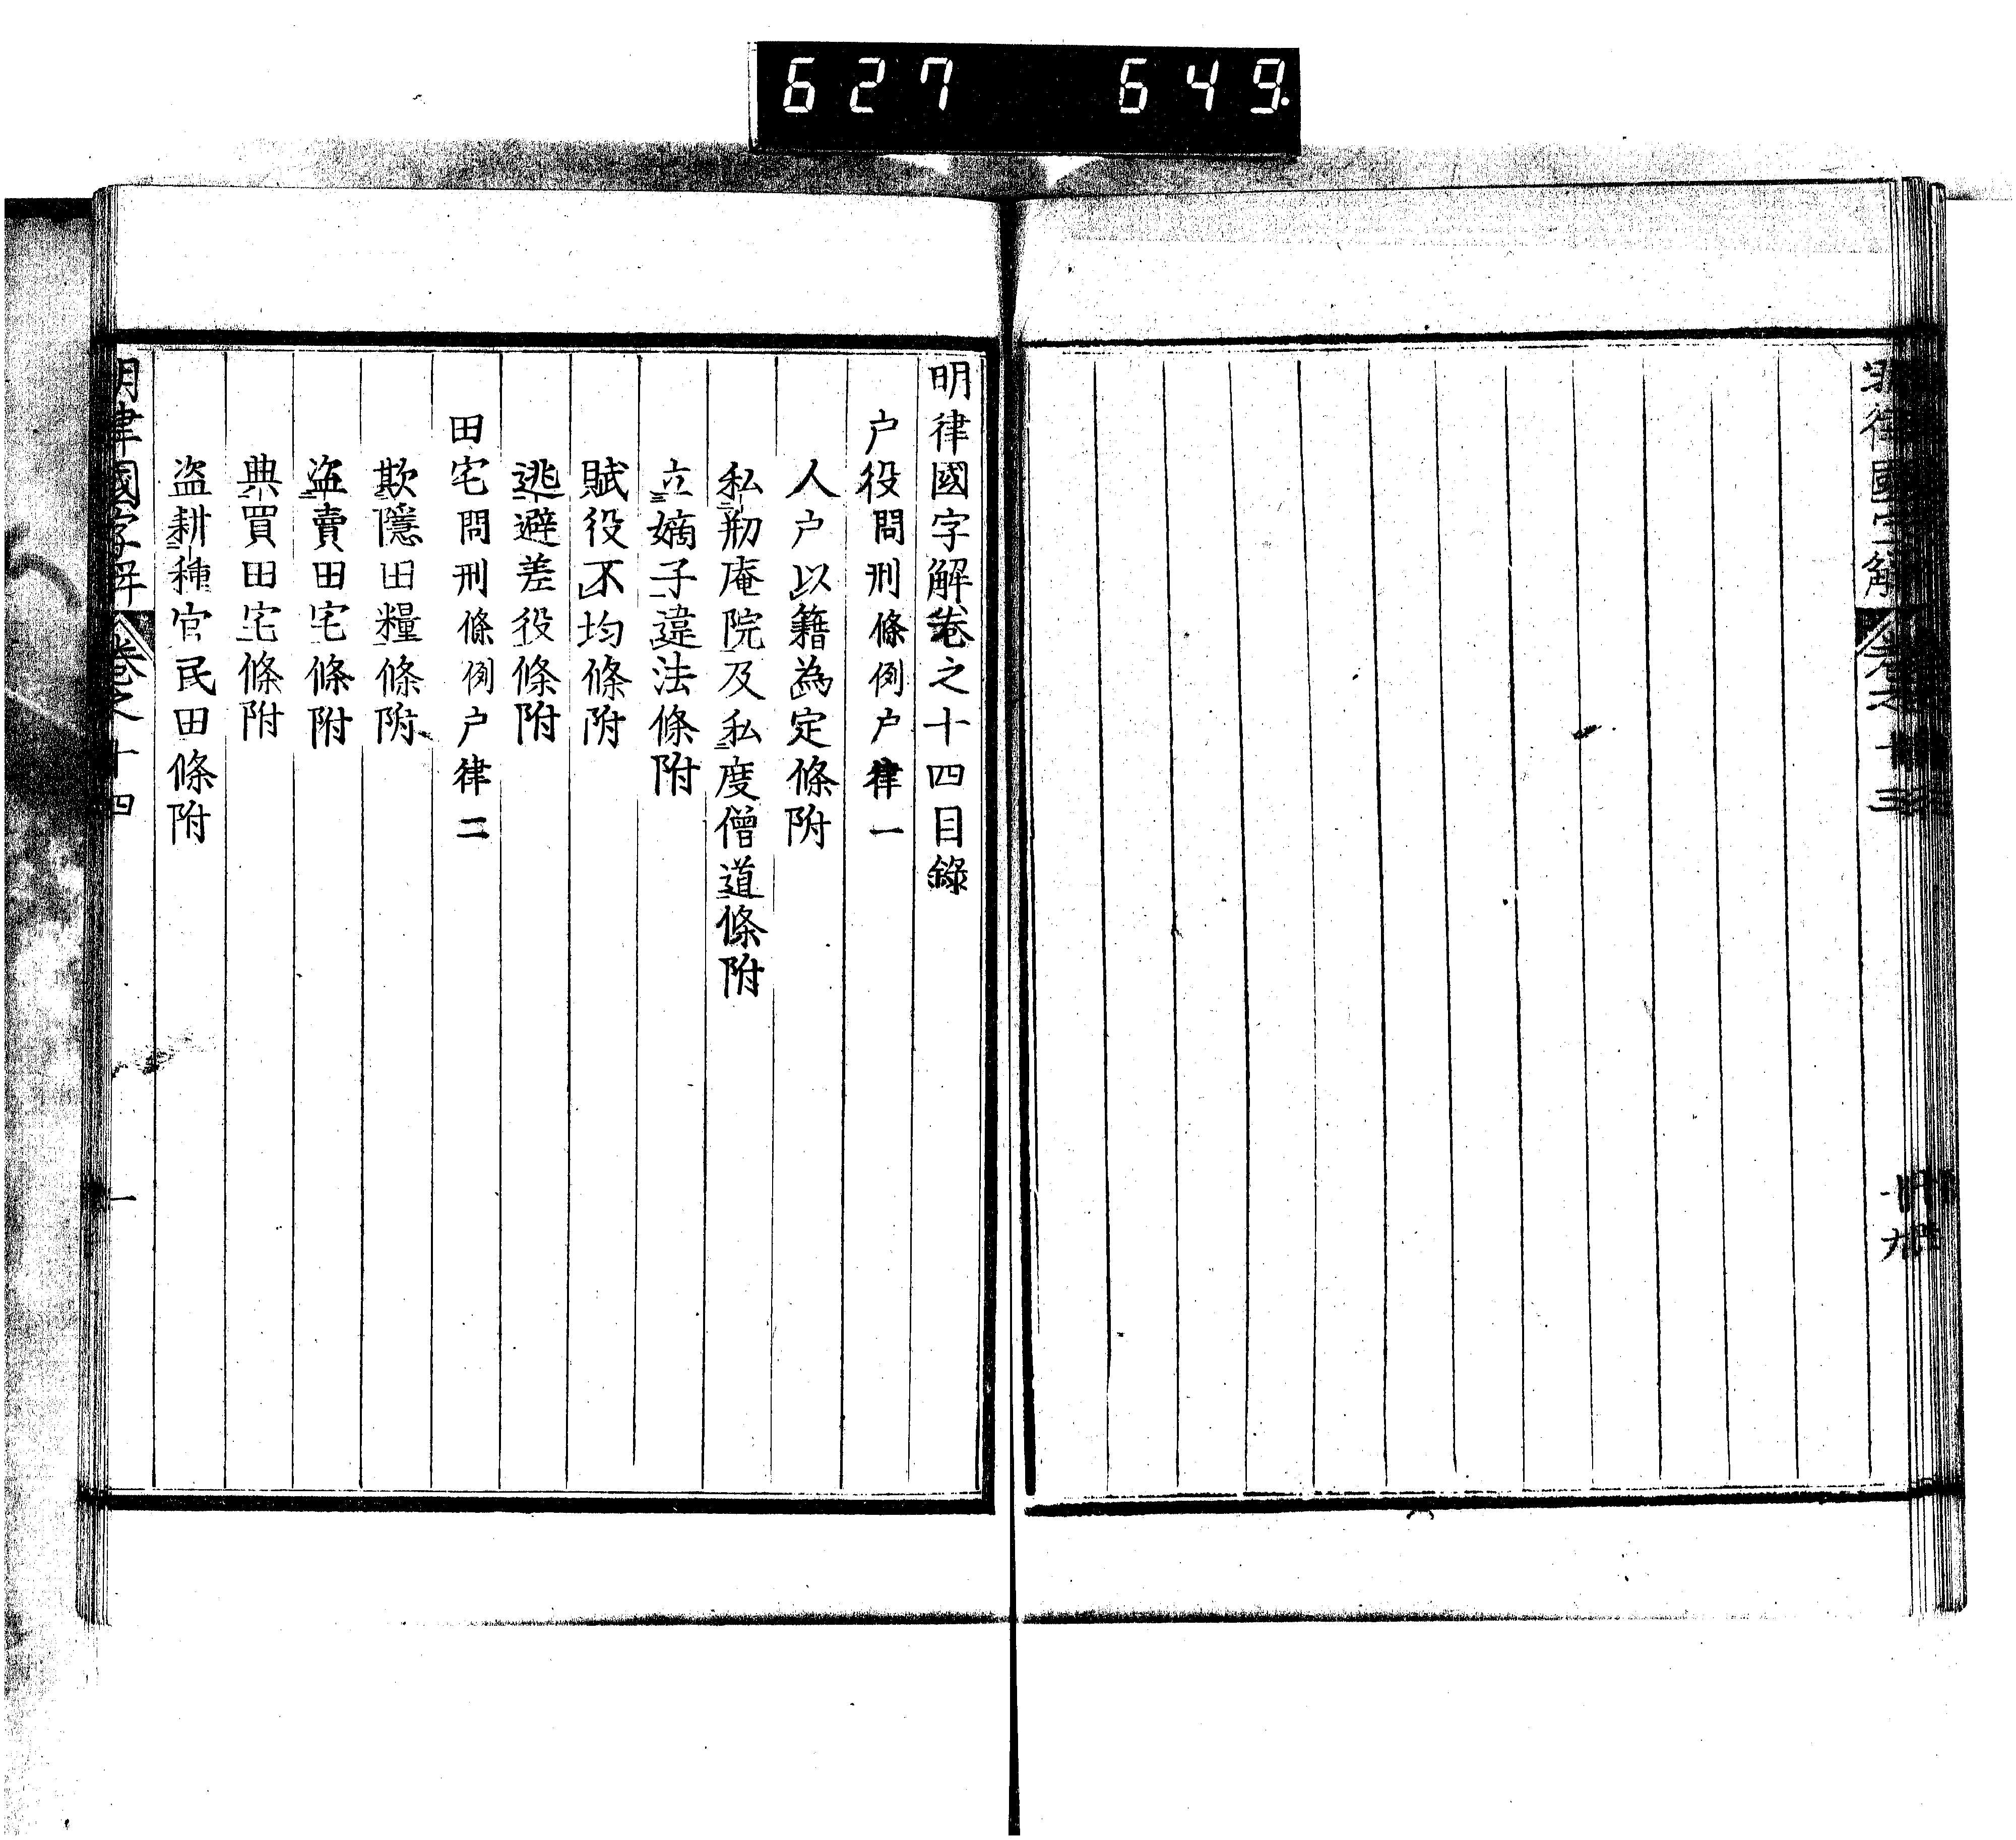 627 649.
明律國字解
卷之十三
明律國字解卷之十四目錄
户役問刑條例户律一
人户以籍為定條附
私剏庵院及私度僧道條附
立嫡子違法條附
賦役不均條附
逃避差役條附
田宅問刑條例户律二
欺隱田糧條附
盗賣田宅條附
典買田宅條附
盗耕種官民田條附
明律國字解 卷之十四 一